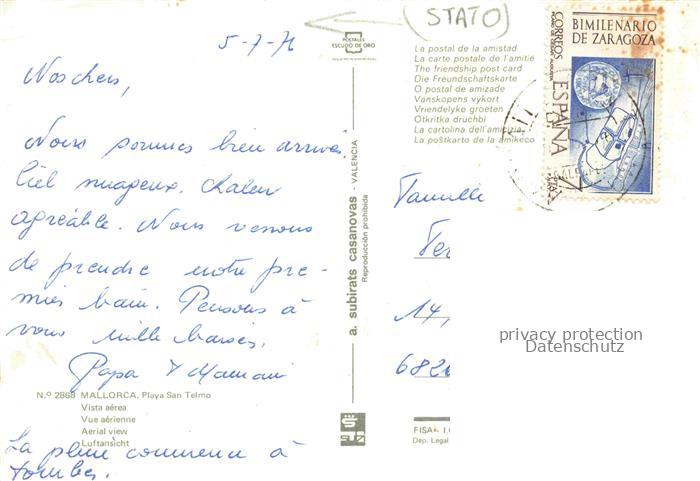 5-7-76
(STATO)
POSTALES
ESCUDO DE ORO
Nos chers,
Nous sommes bien arrivés.
Ciel nuageux. Chaleur
agréable. Nous venons
de prendre notre pre-
mier bain. Pensons à
vous mille baisers.
Papa & Maman
La pluie commence à
tomber.
N.º 2868 MALLORCA. Playa San Telmo
Vista aérea
Vue aérienne
Aerial view
Luftansicht
a. subirats casanovas - VALENCIA
Reproducción prohibida
La postal de la amistad
La carte postale de l'amitié
The friendship post card
Die Freundschaftskarte
O postal de amizade
Vanskopens vykort
Vriendelyke groeten
Otkritka druchbi
La cartolina dell'amicizia
La poŝtkarto de la amikeco
BIMILENARIO
DE ZARAGOZA
CORREOS
ESPAÑA
Famille
14,
FISA
Dep. Legal
privacy protection
Datenschutz